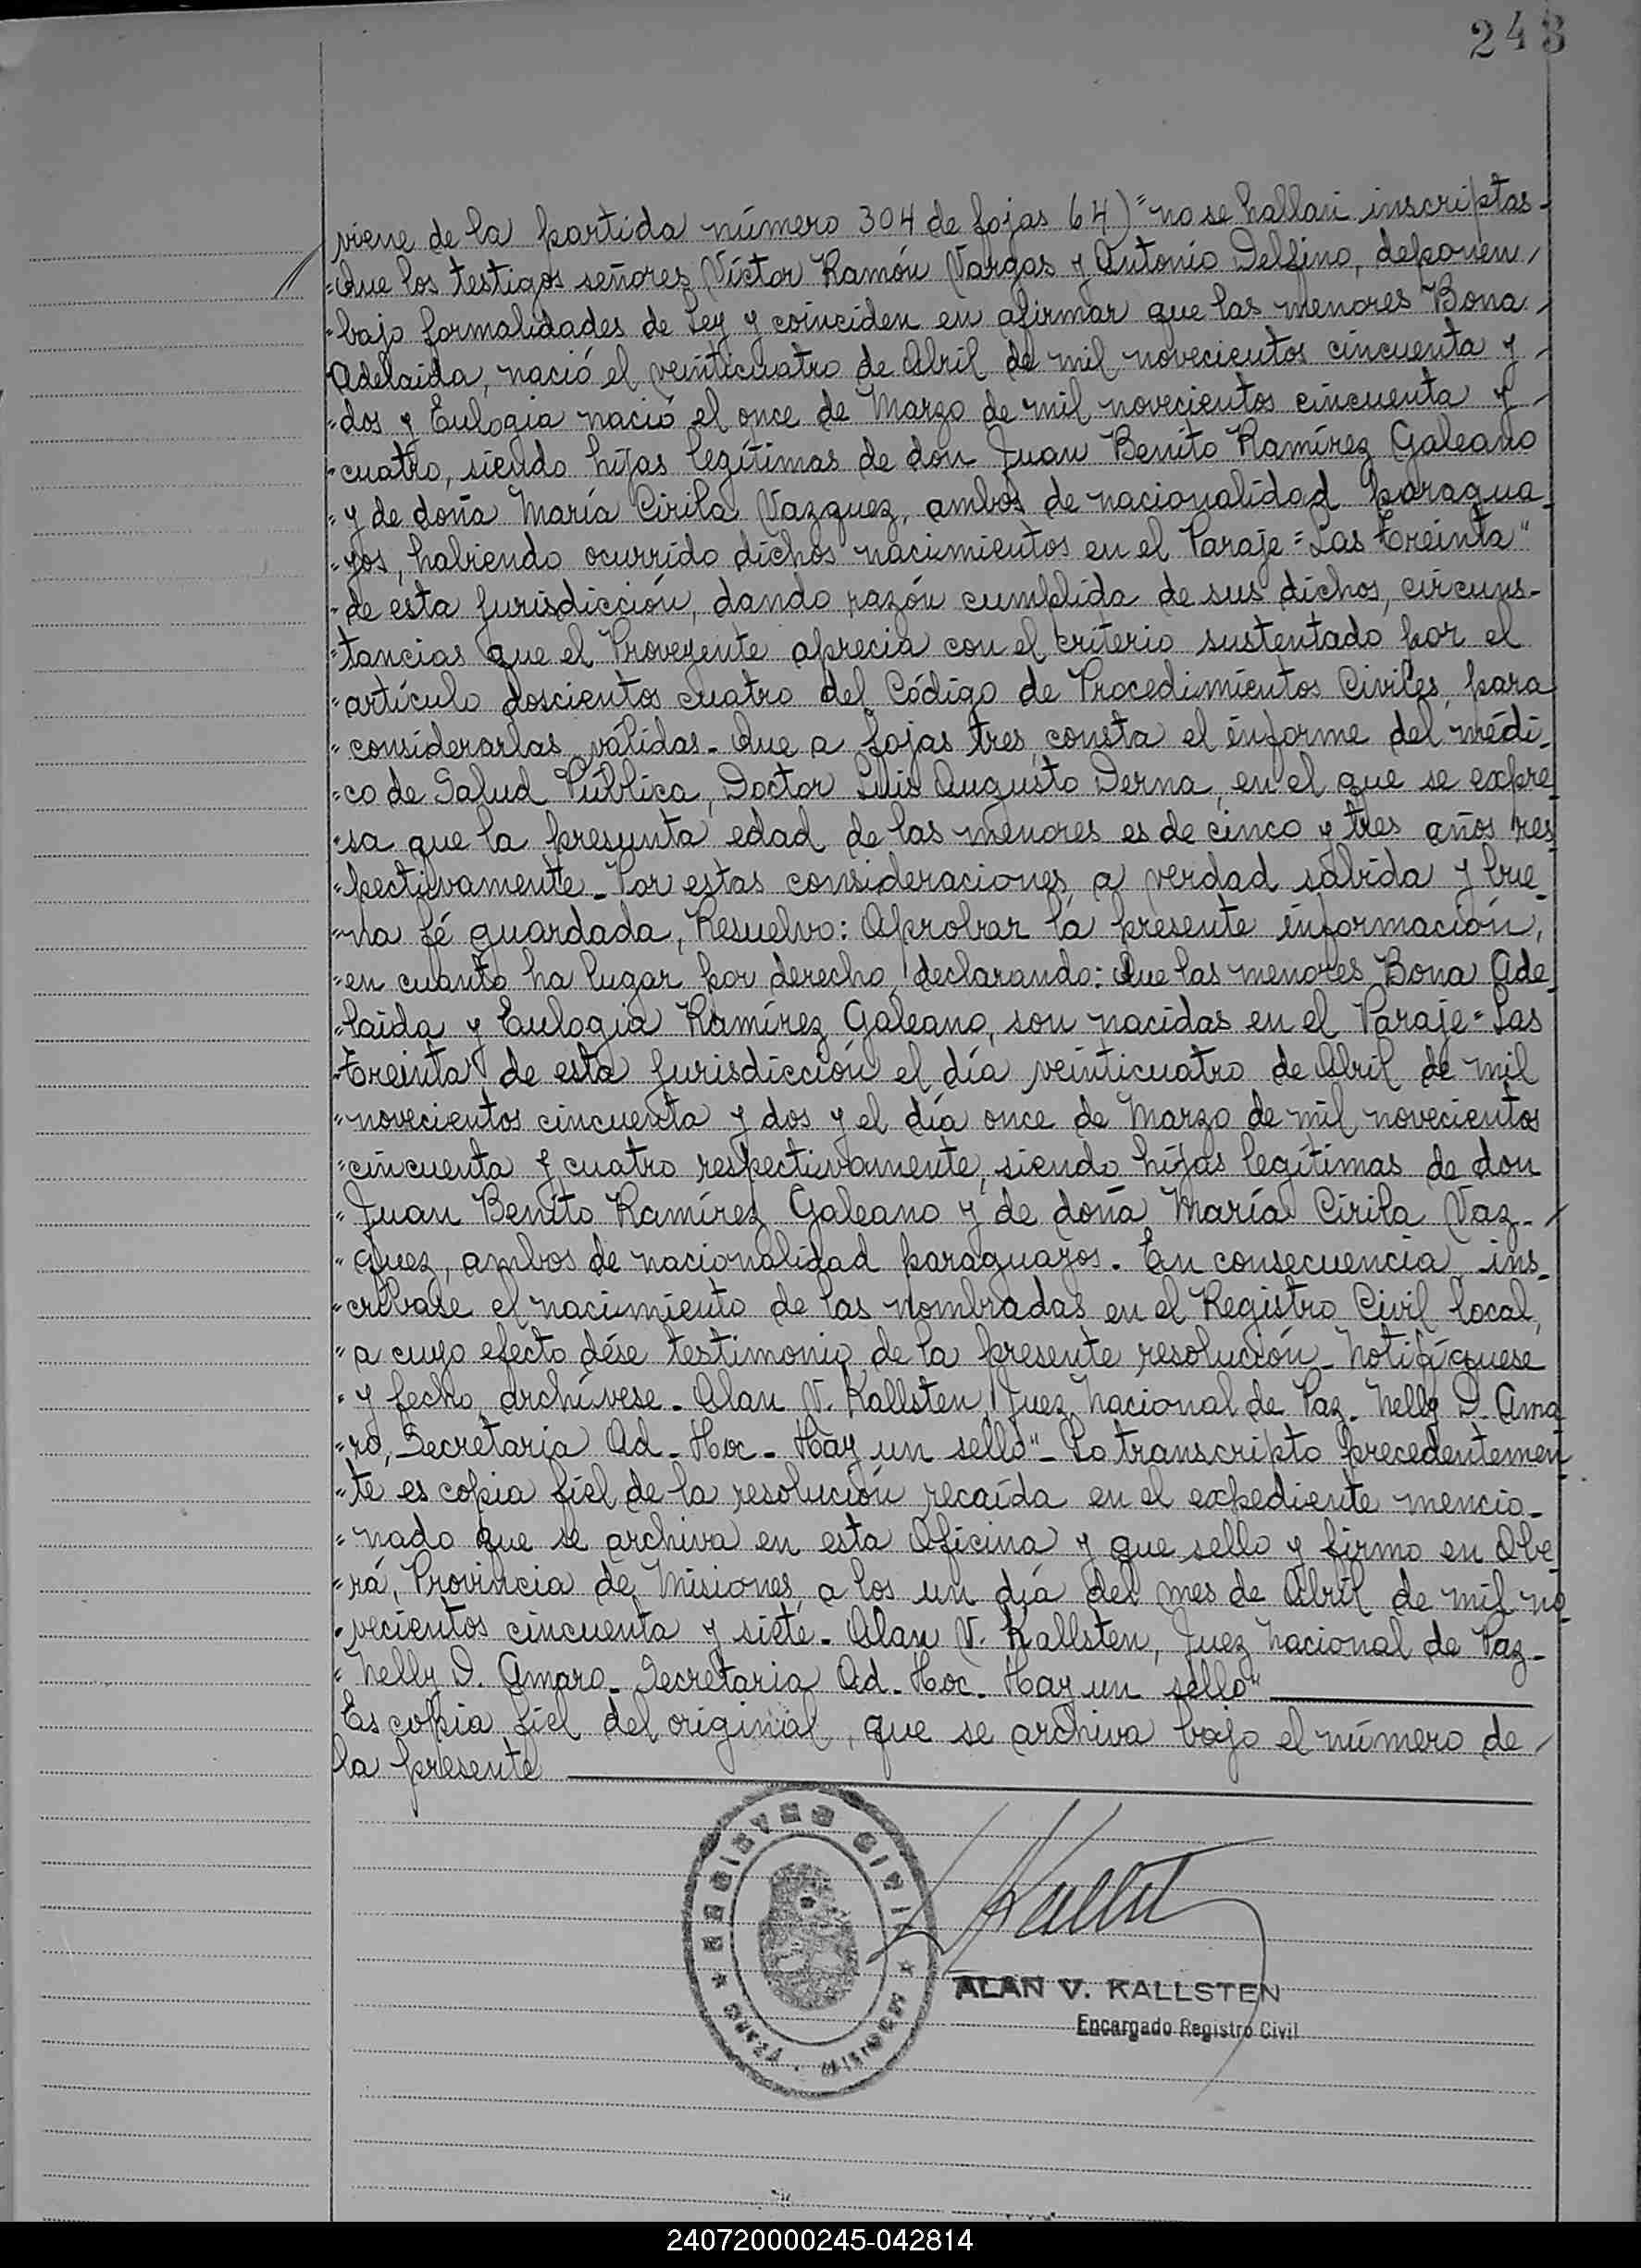 243
viene de la partida número 304 de fojas 64) "no se hallan inscriptas-
"Que los testigos señores Víctor Ramón Vargas y Antonio Delfino, deponen/
"bajo formalidades de Ley y coinciden en afirmar que las menores Bona/
Adelaida, nació el veinticuatro de Abril de mil novecientos cincuenta y-
"dos y Eulogia nació el once de Marzo de mil novecientos cincuenta y-
"cuatro, siendo hijas legítimas de don Juan Benito Ramírez Galeano
"y de doña María Cirila Vazquez, ambos de nacionalidad paragua-
"yos, habiendo ocurrido dichos nacimientos en el Paraje "Las Treinta"
"de esta jurisdicción, dando razón cumplida de sus dichos, circuns-
"tancias que el Proveyente aprecia con el criterio sustentado por el
"artículo doscientos cuatro del Código de Procedimientos Civiles, para
"considerarlas válidas- Que a fojas tres, consta el informe del médi-
"co de Salud Pública, Doctor Luis Augusto Derna, en el que se expre
"sa que la presunta edad de las menores es de cinco y tres años res
"pectivamente- Por estas consideraciones a verdad sabida y bue-
"na fé guardada, Resuelvo: Aprobar la presente información,
"en cuanto ha lugar por derecho, declarando: Que las menores Bona Ade
"laida y Eulogia Ramírez Galeano, son nacidas en el Paraje "Las
"Treinta" de esta jurisdicción el día veinticuatro de Abril de mil
"novecientos cincuenta y dos y el día once de Marzo de mil novecientos
"cincuenta y cuatro respectivamente, siendo hijas legítimas de don
"Juan Benito Ramírez Galeano y de doña María Cirila Vaz-/
"quez, ambos de nacionalidad paraguayos. En consecuencia, ins-
"críbase el nacimiento de las nombradas en el Registro Civil local,
"a cuyo efecto dése testimonio de la presente resolución- Notifíquese
"y fecho, archívese- Alan V. Kallsten, Juez Nacional de Paz- Nelly D. Ama
"ro, Secretaria Ad-Hoc- Hay un sello"- Lo transcripto precedentemen
"te es copia fiel de la resolución recaída en el expediente mencio-
"nado que se archiva en esta Oficina y que sello y firmo en Obe
"rá, Provincia de Misiones, a los un día del mes de Abril de mil no
"vecientos cincuenta y siete- Alan V. Kallsten, Juez Nacional de Paz-
"Nelly D. Amaro- Secretaria Ad-Hoc- Hay un sello"
Es copia fiel del original, que se archiva bajo el número de/
la presente
REGISTRO CIVIL
OBERÁ - MISIONES
ALAN V. KALLSTEN
Encargado Registro Civil
240720000245-042814